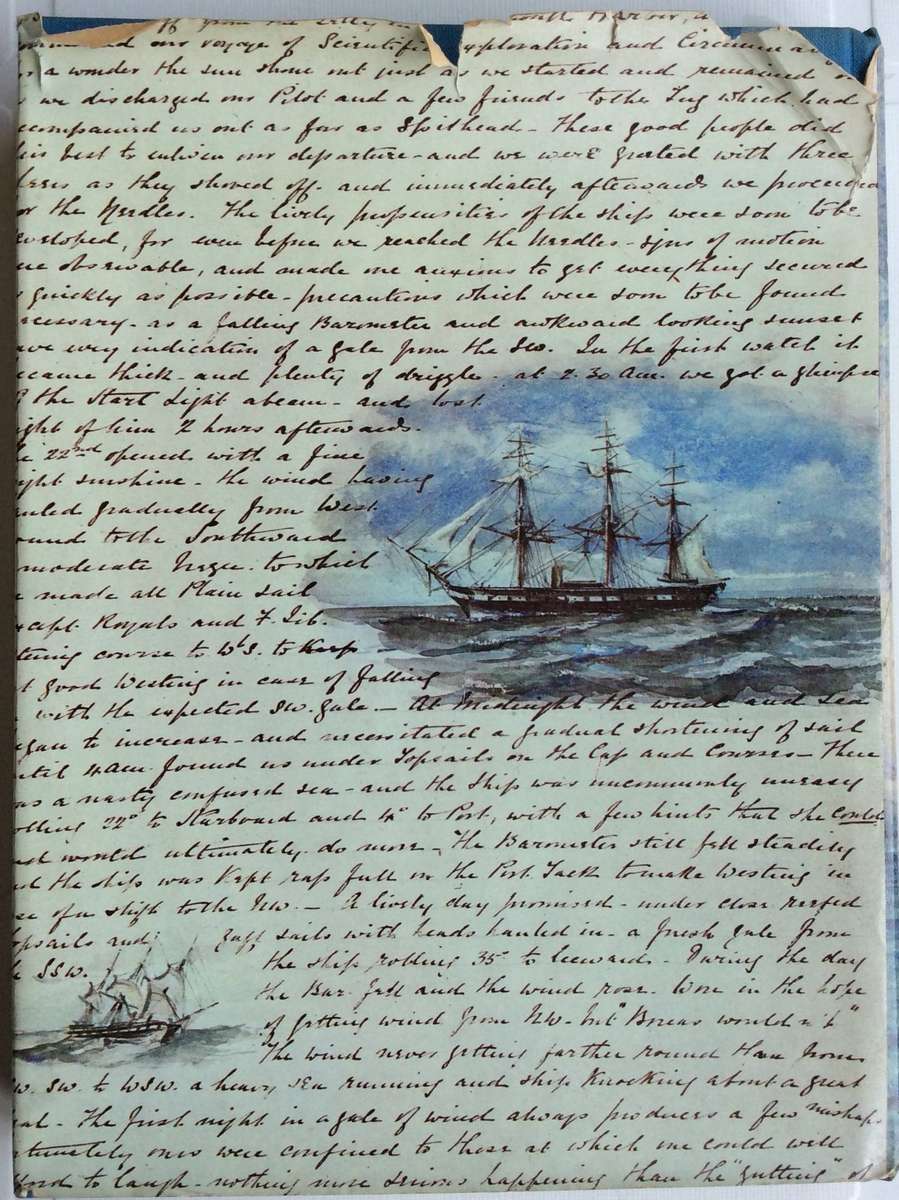 off from the
our voyage of Scientific Exploration and
a wonder the sun shone out just as we started and remained
we discharged our Pilot and a few friends to the Tug which had
ccompanied us out as far as Spithead - These good people did
best to enliven our departure - and we were greeted with three
eers as they shoved off. and immediately afterwards we proceeded
or the Needles. The lively propensities of the ship were soon to be
eveloped, for even before we reached the Needles - signs of motion
observable, and made one anxious to get everything secured
quickly as possible - precautions which were soon to be found
ecessary - as a falling Barometer and awkward looking sunset
ave every indication of a gale from the SW. In the first watch it
ecame thick - and plenty of drizzle - at 2.30 am. we got a glimpse
f the Start Light abeam - and lost
ight of him 2 hours afterwards.
22nd opened with a fine
ight sunshine - the wind having
auled gradually from West
ound to the Southward
moderate breeze. to which
made all Plain sail
except Royals and F. Jib.
course to WbS. to keep
good Westing in case of falling
with the expected SW. gale. - At Midnight the wind and sea
egan to increase - and necessitated a gradual shortening of sail
ntil 4 am found us under Topsails on the Cap and Courses - There
as a nasty confused sea - and the ship was uncommonly uneasy
olling 22° to Starboard and 4° to Port, with a few hints that she could
nd would ultimately do more - The Barometer still fell steadily
nd the ship was kept rap full on the Port Tack to make Westing in
se of a shift to the NW. - A lively day promised - under close reefed
opsails and gaff sails with heads hauled in - a fresh gale from
SSW. the ship rolling 35° to leeward - During the day
the Bar. fell and the wind rose. Wore in the hope
of getting wind from NW - but "Boreas wouldn't"
The wind never getting farther round than from
SW. to WSW. a heavy sea running and ship knocking about a great
eal - The first night in a gale of wind always produces a few mishaps
rtunately ours were confined to those at which one could well
fford to laugh - nothing more serious happening than the "gutting" of